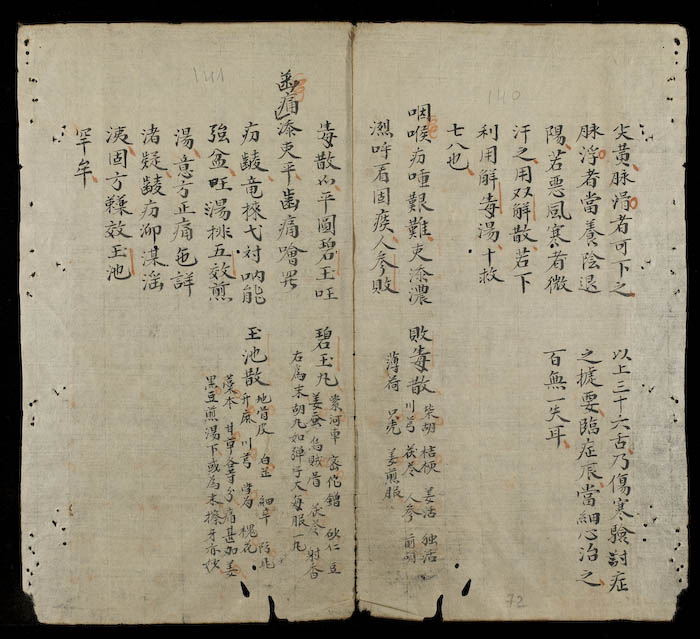 140
尖黃脉滑者可下之
脉浮者當養陰退
陽若惡風寒者微
汗之用双解散若下
利用解毒湯十救
七八也
以上三十六古乃傷寒驗討症
之攄要臨症辰當細心治之
百無一失耳
咽喉疠艱難吏添濃
呼看固痰人參敗
敗毒散 柴胡 桔梗 姜活 独活
川芎 茯苓 人參 前胡
薄荷 只壳 姜煎服
72
141
毒散平圓碧玉旺
碧玉丸 紫河車 密佗 砂仁 豆
姜蚕 烏賊骨 茯苓 射香
右爲末胡丸如弹子大每服一丸
齒痛
添吏平齒痛噲
疠皷竜弋対吶能
強盆旺湯排五效煎
湯意方正痛色詳
渚凝皷疠湛滛
洟固方效玉池
罕牟
玉池散 地骨皮 白芷 細辛 防風
升麻 川芎 當归 槐花
藁本 甘草各等分痛甚加姜
黑豆煎湯下或為末擦牙亦妙